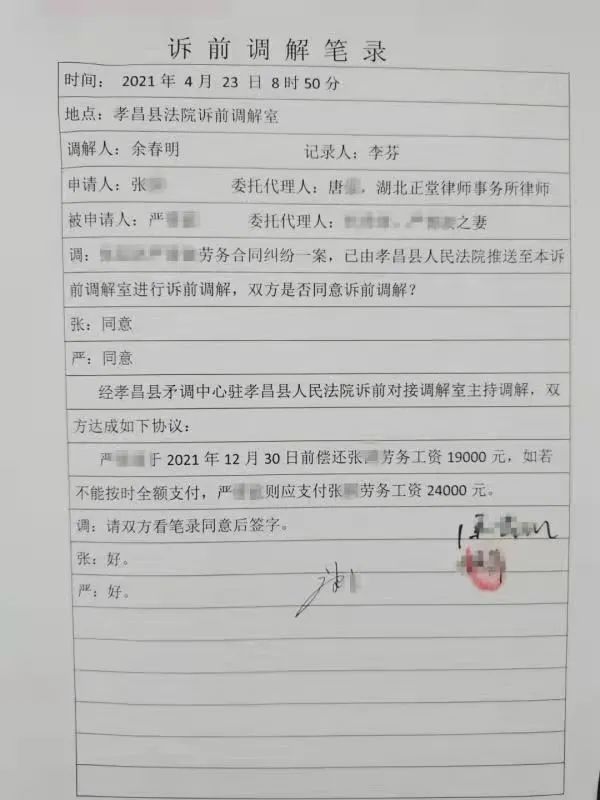 诉前调解笔录
时间： 2021 年 4 月 23 日 8 时 50 分
地点：孝昌县法院诉前调解室
调解人：余春明 记录人：李芬
申请人：张 委托代理人：唐 ，湖北正堂律师事务所律师
被申请人：严 委托代理人： 之妻
调： 劳务合同纠纷一案，已由孝昌县人民法院推送至本诉
前调解室进行诉前调解，双方是否同意诉前调解？
张：同意
严：同意
经孝昌县矛调中心驻孝昌县人民法院诉前对接调解室主持调解，双
方达成如下协议：
严 于 2021 年 12 月 30 日前偿还张 劳务工资 19000 元，如若
不能按时全额支付，严 则应支付张 劳务工资 24000 元。
调：请双方看笔录同意后签字。
张：好。
严：好。